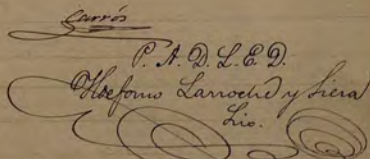 Garrós
P. A. D. L. E. D.
Ildefonso Larroche y Siera
Srio.